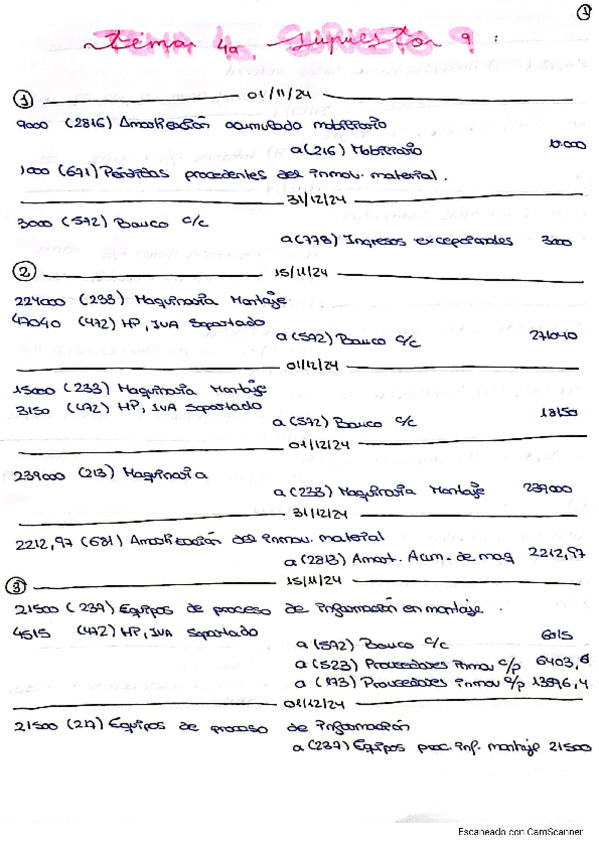 1
Tema 4a. Supuesto 9:
1 01/11/24
9000 (2816) Amortización acumulada mobiliario
a (216) Mobiliario 10.000
1000 (671) Pérdidas procedentes del inmov. material.
31/12/24
3000 (572) Banco c/c
a (778) Ingresos excepcionales 3000
2 15/11/24
224000 (233) Maquinaria Montaje
47040 (472) HP, IVA Soportado
a (572) Banco c/c 271040
01/12/24
15000 (233) Maquinaria Montaje
3150 (472) HP, IVA Soportado
a (572) Banco c/c 18150
01/12/24
239000 (213) Maquinaria
a (233) Maquinaria Montaje 239000
31/12/24
2212,97 (681) Amortización del inmov. material
a (2813) Amort. Acum. de maq 2212,97
3 15/11/24
21500 (237) Equipos de proceso de información en montaje.
4515 (472) HP, IVA Soportado
a (572) Banco c/c 6015
a (523) Proveedores inmov c/p 6403,6
a (173) Proveedores inmov 13596,4
01/12/24
21500 (217) Equipos de proceso de información
a (237) Equipos proc. inf. montaje 21500
Escaneado con CamScanner